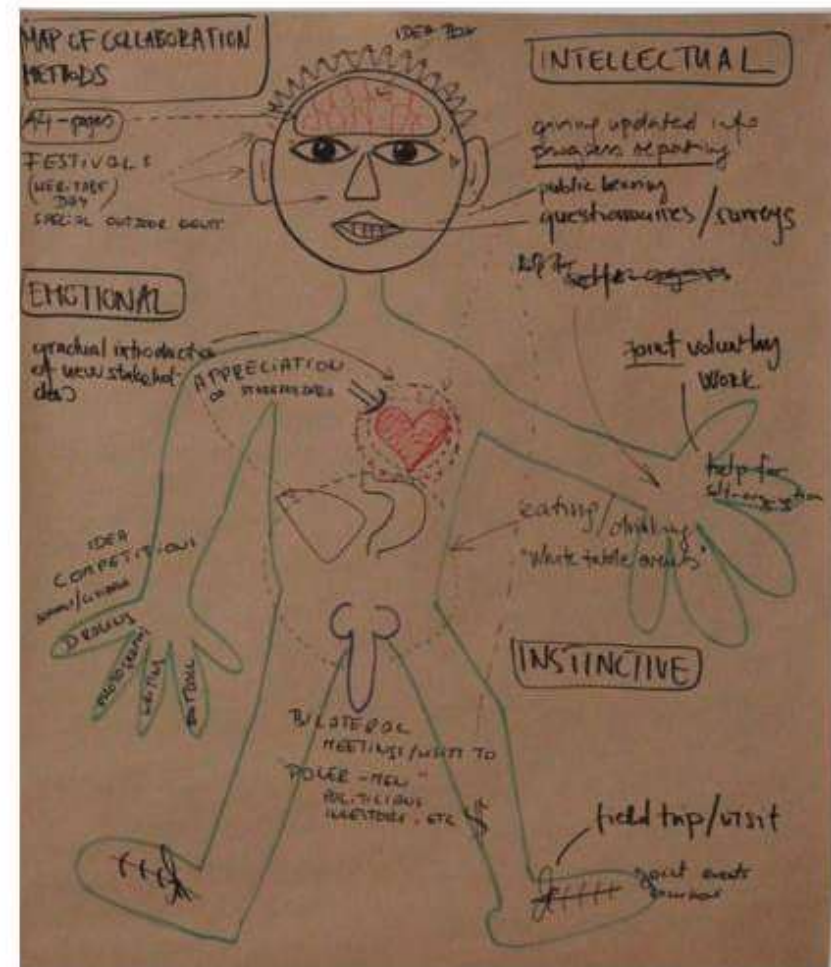 MAP OF COLLABORATION
METHODS
IDEA BOX
INTELLECTUAL
A4-pages
FESTIVALS
(HERITAGE
DAY)
SPECIAL OUTDOOR EVENT
giving updated info
progress reporting
public hearing
questionnaires/surveys
help for
EMOTIONAL
gradual introduction
of new stakehol-
ders
APPRECIATION
OF STAKEHOLDERS
joint voluntary
work
help for
self-organization
eating/
drinking
"White table events"
IDEA
COMPETITIONS
DRAWING
PHOTOGRAPHY
WRITING
INSTINCTIVE
BILATERAL
MEETINGS/VISITS TO
"POWER-MEN"
POLITICIANS
INVESTORS, ETC $
field trip/visit
joint events